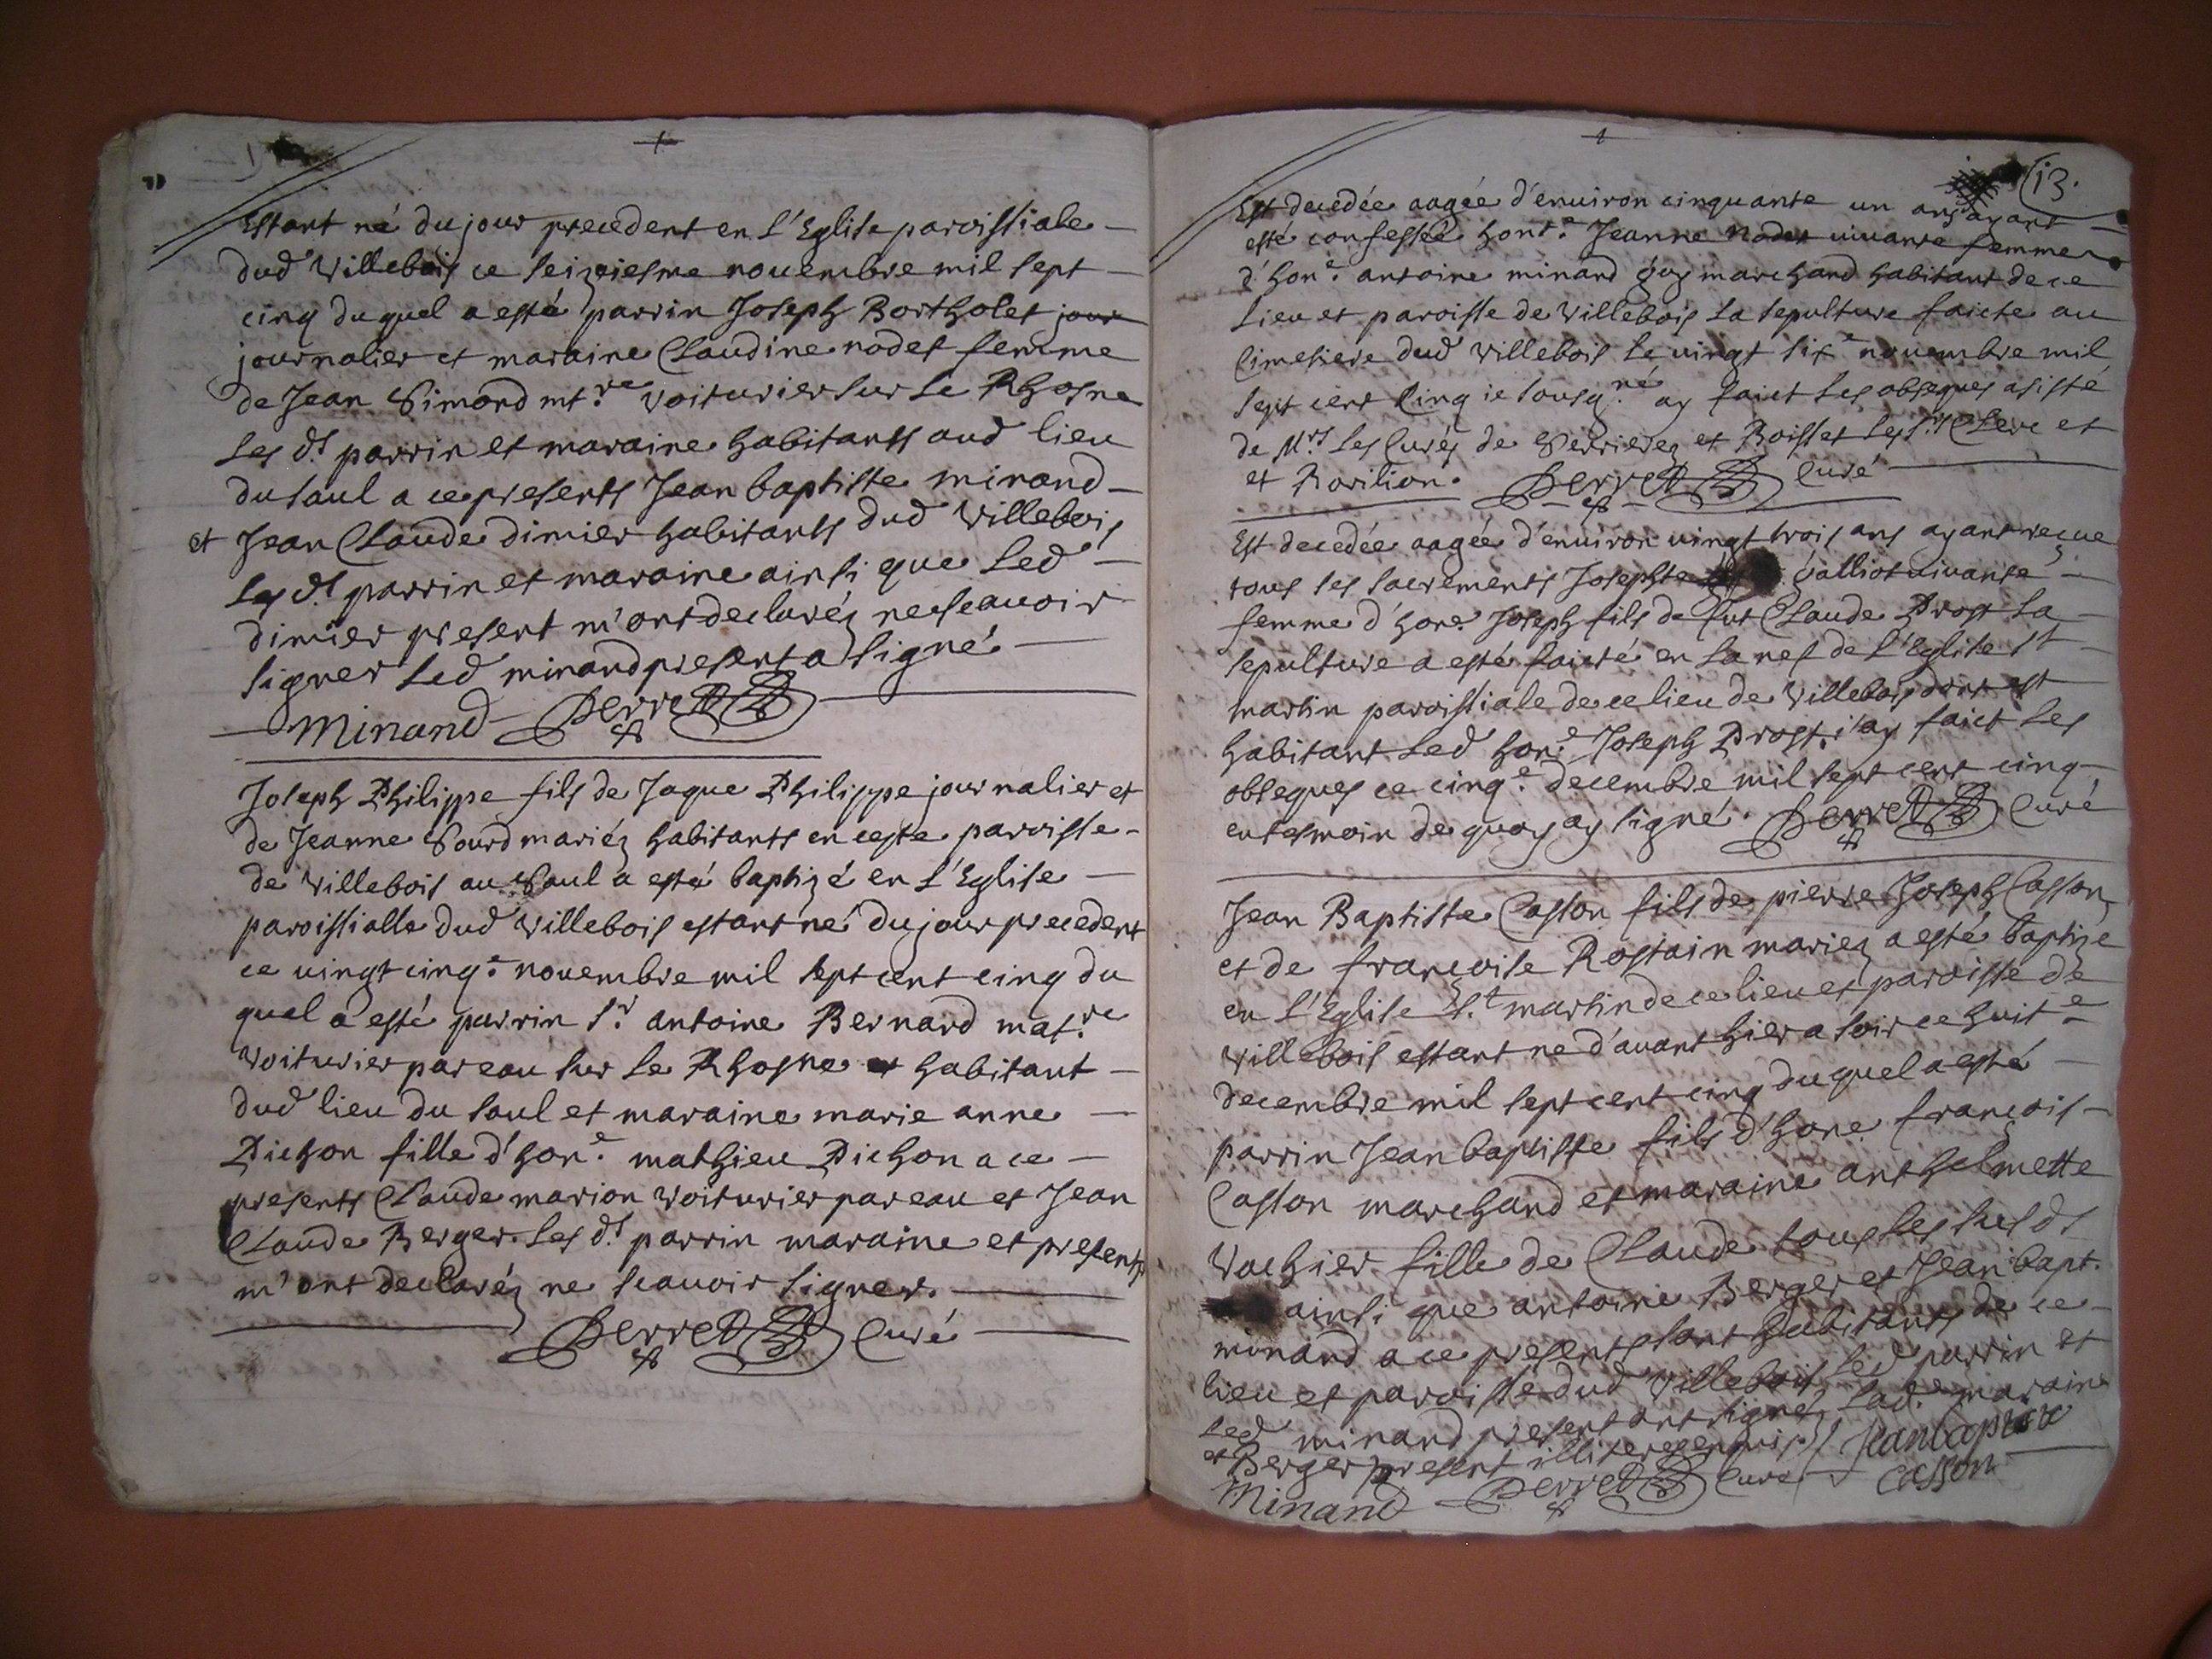 Estant né du jour precedent en l'Eglise paroissiale
dud villebois ce seiziesme nouembre mil sept
cinq duquel a esté parrin Joseph Bortholet jour
journalier et maraine Claudine nodet femme
de Jean Simond mt.re voiturier sur le Rhosne
les d.s parrin et maraine habitants aud lieu
du saul a ce presents Jean baptiste minand
et Jean Claude dimier habitants dud villebois
les d.s parrin et maraine ainsi que led
dimier present m'ont declaréz ne scauoir
signer led minand present a signé
Minand Perret
Joseph Philippe fils de Jaque Philippe journalier et
de Jeanne Sourd mariéz habitants en ceste paroisse
de villebois au Saul a esté baptizé en l'Eglise
paroissialle dud villebois estant né du jour precedent
ce uingt cinq.e nouembre mil sept cent cinq du
quel a esté parrin s.r antoine Bernard mat.re
voiturier par eau sur le Rhosne et habitant
dud lieu du saul et maraine marie anne
Pichon fille d'hon.e mathieu Pichon a ce
presents Claude marion voiturier par eau et Jean
Claude Berger. les d.s parrin maraine et presents
m'ont declaréz ne scauoir signer.
Perret Curé
13.
Est decedée aagée d'enuiron cinquante un ans ayant
esté confessée hon.e Jeanne nodet uiuante femme
d'hon.e antoine minand marchand habitant de ce
lieu et paroisse de villebois la sepulture faicte au
Cimetiere dud villebois le uingt six.e nouembre mil
sept cent Cinq ie sousig.né ay faict les obseques asisté
de M.rs les Curéz de Serrierez et Boisset les s.rs Clerc et
et Rovilion. Perret Curé
Est decedée aagée d'enuiron uingt trois ans ayant reçue
tous ses sacrements Josephte galliot uiuante
femme d'hon.e Joseph fils de fut Claude Prost la
sepulture a esté faicte en la nef de l'Eglise st
martin paroissiale de ce lieu de villebois dont est
habitant led hon.e Joseph Prost. i'ay faict les
obseques ce cinq.e decembre mil sept cent cinq
en tesmoin de quoy ay signé. Perret Curé
Jean Baptiste Casson fils de pierre Joseph Casson
et de françoise Rostain mariez a esté baptize
en l'Eglise S.t martin de ce lieu et paroisse de
villebois estant ne d'auant hier a soir ce huit.e
decembre mil sept cent cinq duquel a esté
parrin Jean baptiste fils d'hon.e françois
Casson marchand et maraine anthelmette
Vachier fille de Claude tous les susd.s
ainsi que antoine Berger et Jean bapt.
minand a ce presents sont habitants de ce
lieu et paroisse dud villebois led parrin et
led minand present ont signez lad.e maraine
et Berger present illiterez Jean baptiste
Minand Perret Curé Casson